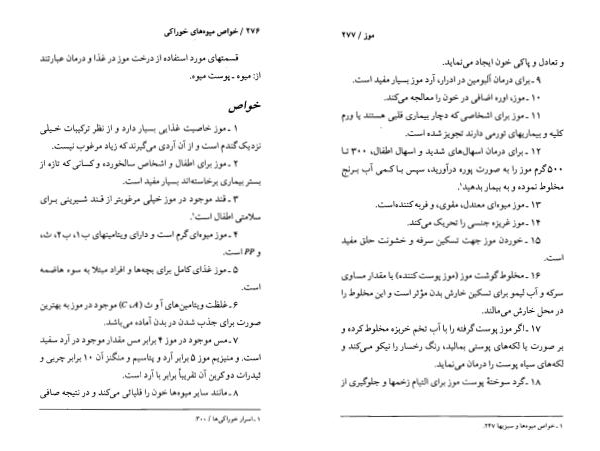 ۲۷۶ / خواص میوه‌های خوراکی
قسمتهای مورد استفاده از درخت موز در غذا و درمان عبارتند
از: میوه ـ پوست میوه.
خواص
۱ ـ موز خاصیت غذایی بسیار دارد و از نظر ترکیبات خیلی
نزدیک گندم است و از آن آردی می‌گیرند که زیاد مرغوب نیست.
۲ ـ موز برای اطفال و اشخاص سالخورده و کسانی که تازه از
بستر بیماری برخاسته‌اند بسیار مفید است.
۳ ـ قند موجود در موز خیلی مرغوبتر از قند شیرینی برای
سلامتی اطفال است¹.
۴ ـ موز میوه‌ای گرم است و دارای ویتامینهای ب۱، ب۲، ث،
و PP است.
۵ ـ موز غذای کامل برای بچه‌ها و افراد مبتلا به سوء هاضمه
است.
۶ ـ غلظت ویتامین‌های آ و ث (C، A) موجود در موز به بهترین
صورت برای جذب شدن در بدن آماده می‌باشد.
۷ ـ مس موجود در موز ۴ برابر مس مقدار موجود در آرد سفید
است. و منیزیم موز ۵ برابر آرد و پتاسیم و منگنز آن ۱۰ برابر چربی و
ئیدرات دوکربن آن تقریباً برابر با آرد است.
۸ ـ مانند سایر میوه‌ها خون را قلیائی می‌کند و در نتیجه صافی
۱ ـ اسرار خوراکی‌ها / ۳۰۰.
موز / ۲۷۷
و تعادل و پاکی خون ایجاد می‌نماید.
۹ ـ برای درمان آلبومین در ادرار، آرد موز بسیار مفید است.
۱۰ ـ موز، اوره اضافی در خون را معالجه می‌کند.
۱۱ ـ موز برای اشخاصی که دچار بیماری قلبی هستند یا ورم
کلیه و بیماریهای تورمی دارند تجویز شده است.
۱۲ ـ برای درمان اسهال‌های شدید و اسهال اطفال، ۳۰۰ تا
۵۰۰ گرم موز را به صورت پوره درآورید، سپس با کمی آب برنج
مخلوط نموده و به بیمار بدهید¹.
۱۳ ـ موز میوه‌ای معتدل، مقوی، و فربه کننده است.
۱۴ ـ موز غریزه جنسی را تحریک می‌کند.
۱۵ ـ خوردن موز جهت تسکین سرفه و خشونت حلق مفید
است.
۱۶ ـ مخلوط گوشت موز (موز پوست کننده) با مقدار مساوی
سرکه و آب لیمو برای تسکین خارش بدن مؤثر است و این مخلوط را
در محل خارش می‌مالند.
۱۷ ـ اگر موز پوست گرفته را با آب تخم خربزه مخلوط کرده و
بر صورت یا لکه‌های پوستی بمالید، رنگ رخسار را نیکو می‌کند و
لکه‌های سیاه پوست را درمان می‌نماید.
۱۸ ـ گرد سوختهٔ پوست موز برای التیام زخمها و جلوگیری از
۱ ـ خواص میوه‌ها و سبزیها ۲۴۷.